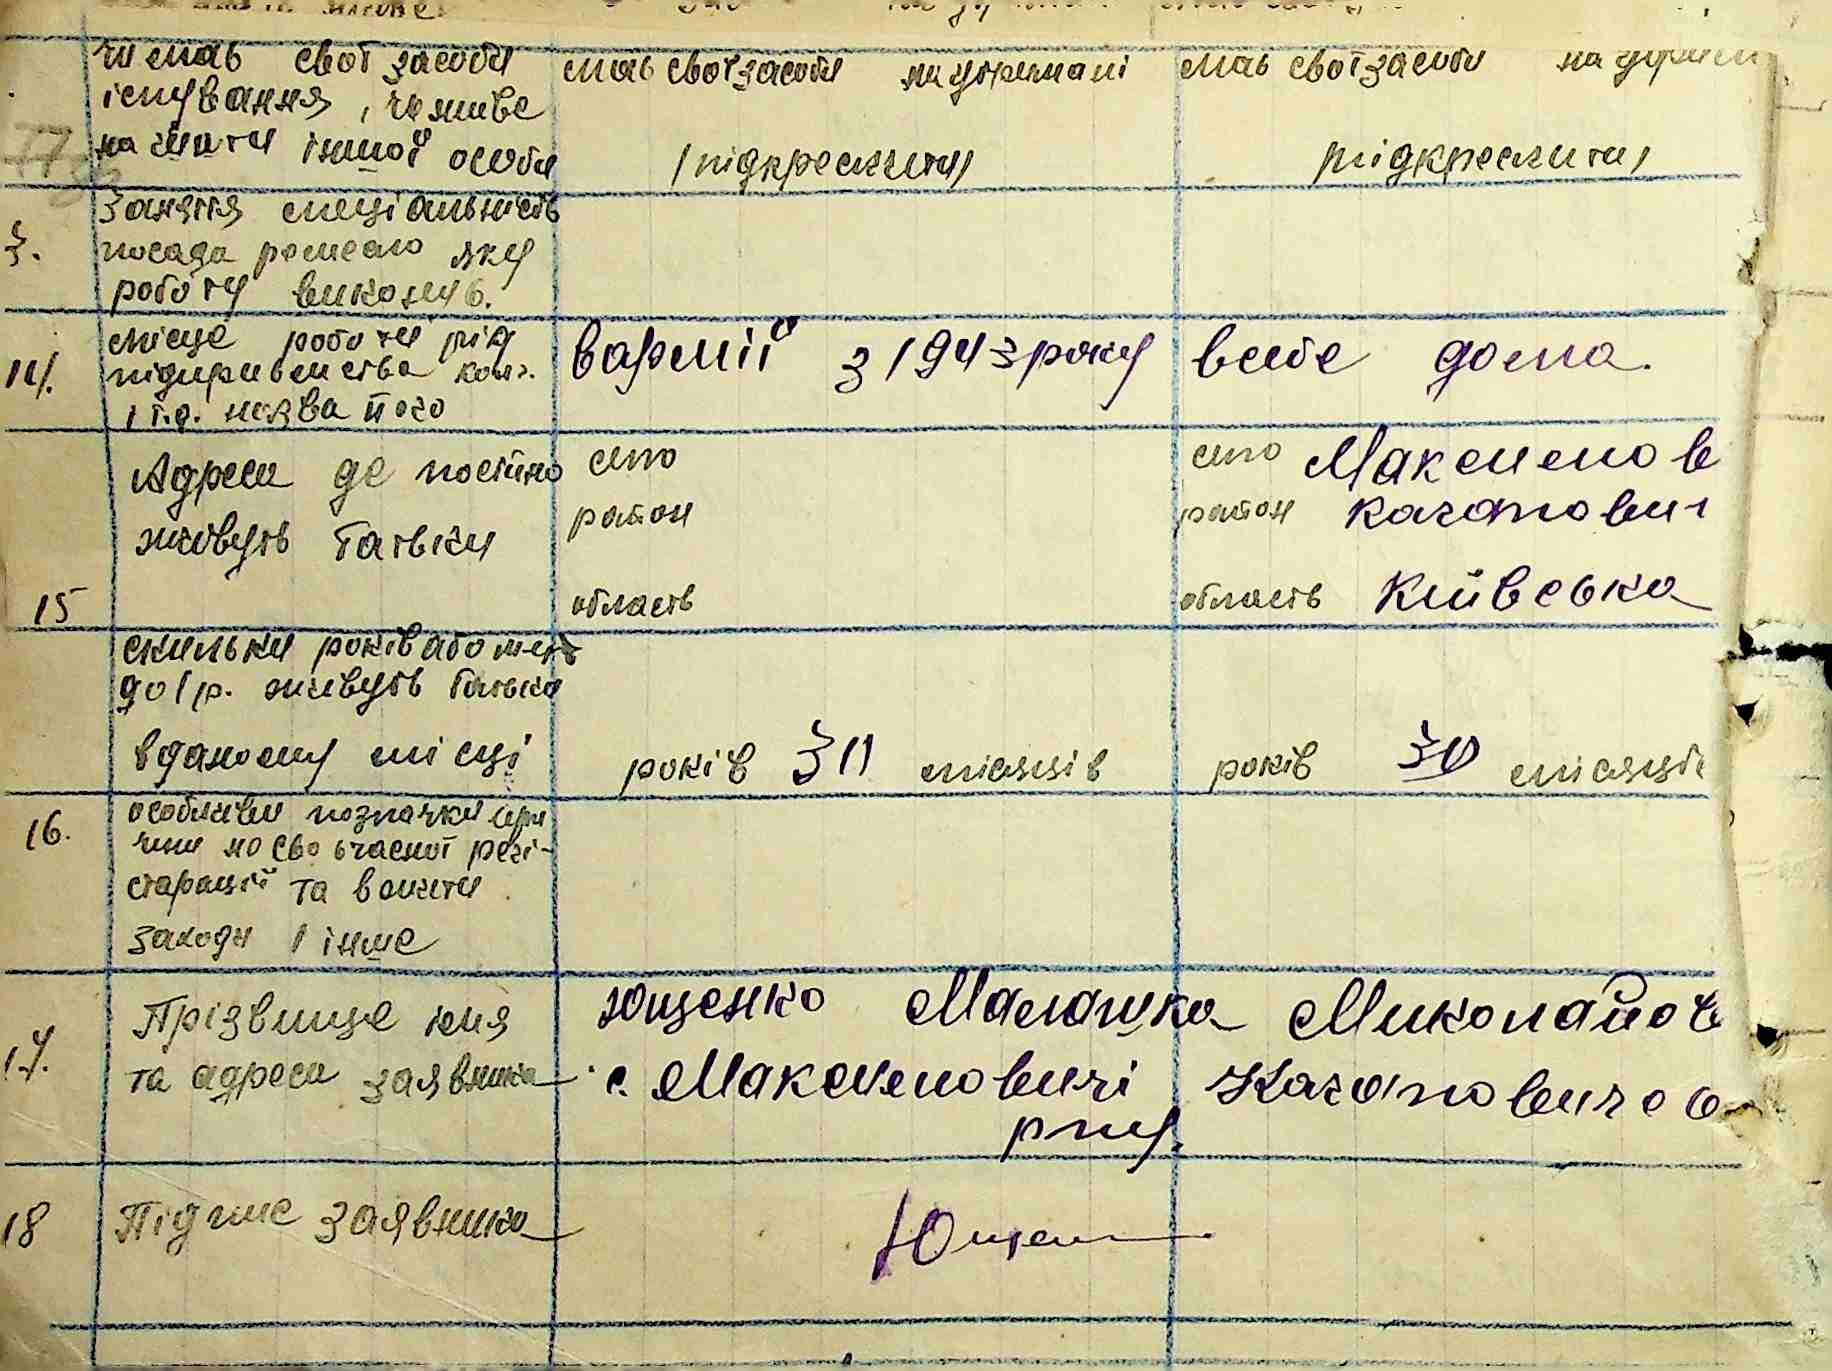 чи має свої засоби
існування, чи живе
на чити іншої особи
має свої засоби на утримані
(підкреслити)
має свої засоби на утрим
підкреслити)
3.
Заняття спеціальність
посада ремесло яку
роботу виконув.
14.
місце роботи рід
підпривемства колг.
і т.д. назва його
вармії з 1943 року
всебе дома.
15
Адреса де постійно
живуть батьки
село
район
область
село Максимов
район Каганович
область Київська
скильки років або меть
до 1 р. живуть батьки
вданому місці
років 30 місяців
років 30 місяців
16.
особливи позначки при
чини но своьчасної регі-
старації та вжити
заходи і інше
17.
Прізвище імя
та адреса заявника
Ющенко Малашка Миколайов
с. Максимовичі Кагановичсв
рну.
18
Підпис заявника
Ющен